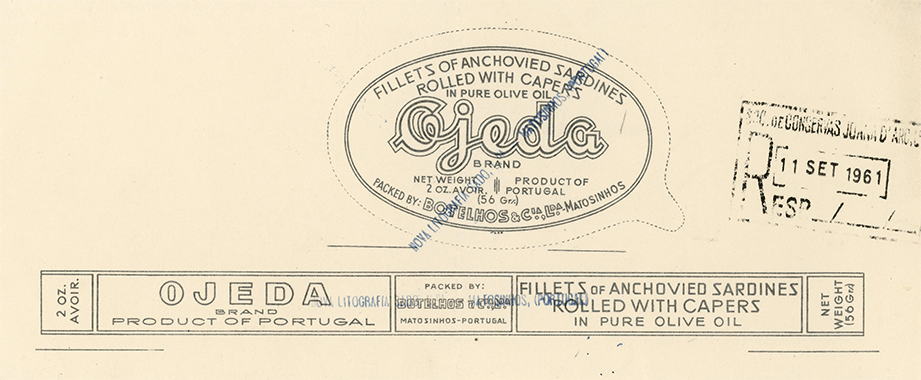 FILLETS OF ANCHOVIED SARDINES
ROLLED WITH CAPERS
IN PURE OLIVE OIL
Ojeda
BRAND
NET WEIGHT
2 OZ. AVOIR.
(56 Grs)
PRODUCT OF
PORTUGAL
PACKED BY: BOTELHOS & Cia., Lda. MATOSINHOS
NOVA LITOGRAFIA, MATOSINHOS, (PORTUGAL)
SOC. DE CONSERVAS JOANA D'ARC
R
11 SET 1961
ESP. / /
2 OZ.
AVOIR.
OJEDA
BRAND
PRODUCT OF PORTUGAL
PACKED BY:
BOTELHOS & Cia., Lda.
MATOSINHOS-PORTUGAL
LITOGRAFIA, MATOSINHOS, (PORTUGAL)
FILLETS OF ANCHOVIED SARDINES
ROLLED WITH CAPERS
IN PURE OLIVE OIL
NET
WEIGHT
(56 Grs)